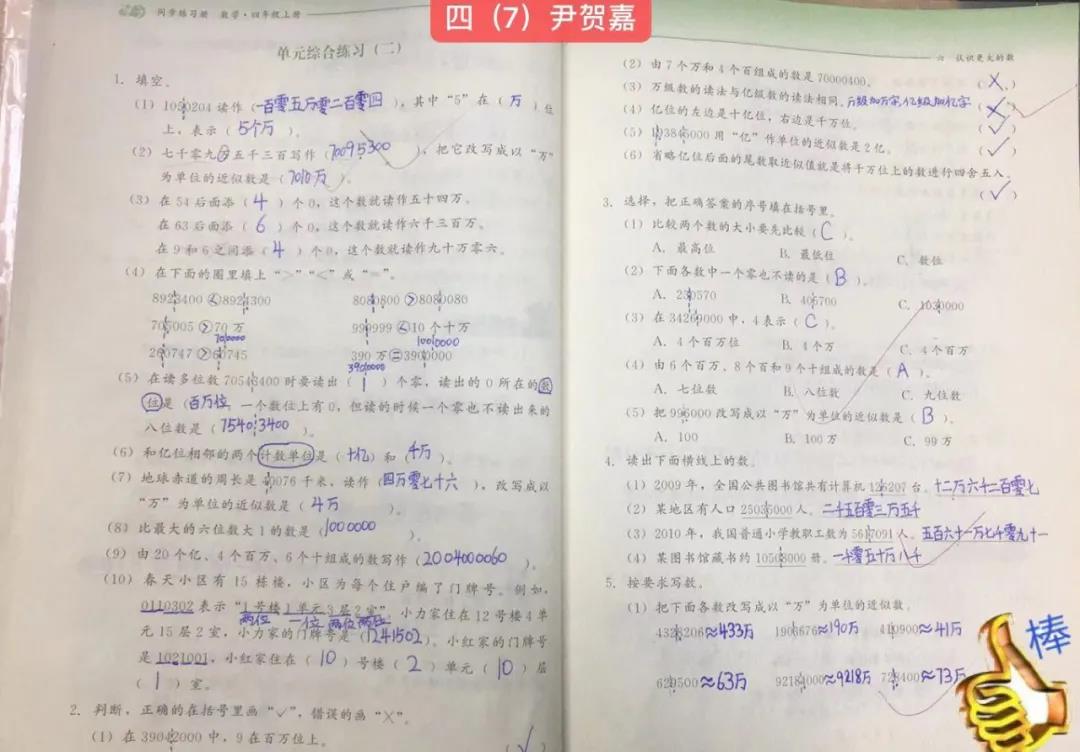 四（7）尹贺嘉
同步练习册 数学·四年级上册
单元综合练习（二）
1. 填空。
（1）1050204读作（一百零五万零二百零四），其中“5”在（万）位
上，表示（5个万）。
（2）七千零九万五千三百写作（70095300），把它改写成以“万”
为单位的近似数是（7010万）。
（3）在54后面添（4）个0，这个数就读作五十四万。
在63后面添（6）个0，这个数就读作六千三百万。
在9和6之间添（4）个0，这个数就读作九十万零六。
（4）在下面的圈里填上“>”“<”或“=”。
8923400<8924300 8080800>8080080
705005>70万 999999<10个十万
700000 1000000
260747>60745 390万=3900000
3900000
（5）在读多位数70543400时要读出（1）个零，读出的0所在的数
位是（百万位，一个数位上有0，但读的时候一个零也不读出来的
八位数是（75403400）。
（6）和亿位相邻的两个计数单位是（十亿）和（千万）。
（7）地球赤道的周长是40076千米，读作（四万零七十六），改写成以
“万”为单位的近似数是（4万）。
（8）比最大的六位数大1的数是（1000000）。
（9）由20个亿、4个百万、6个十组成的数写作（2004000060）。
（10）春天小区有15栋楼，小区为每个住户编了门牌号。例如，
0110302表示“1号楼1单元3层2室”，小力家住在12号楼4单
两位 一位 两位 两位
元15层2室，小力家的门牌号是（1241502）。小红家的门牌号
是1021001，小红家住在（10）号楼（2）单元（10）层
（1）室。
2. 判断，正确的在括号里画“✓”，错误的画“×”。
（1）在39042000中，9在百万位上。（✓）
六 认识更大的数
（2）由7个万和4个百组成的数是70000400。（×）
（3）万级数的读法与亿级数的读法相同。万级加万字，亿级加亿字（×）
（4）亿位的左边是十亿位，右边是千万位。（✓）
（5）193846000用“亿”作单位的近似数是2亿。（✓）
（6）省略亿位后面的尾数取近似值就是将千万位上的数进行四舍五入。
（✓）
3. 选择，把正确答案的序号填在括号里。
（1）比较两个数的大小要先比较（C）。
A. 最高位 B. 最低位 C. 数位
（2）下面各数中一个零也不读的是（B）。
A. 230570 B. 406700 C. 1030000
（3）在34260000中，4表示（C）。
A. 4个百万位 B. 4个万 C. 4个百万
（4）由6个百万、8个百和9个十组成的数是（A）。
A. 七位数 B. 八位数 C. 九位数
（5）把996000改写成以“万”为单位的近似数是（B）。
A. 100 B. 100万 C. 99万
4. 读出下面横线上的数。
（1）2009年，全国公共图书馆共有计算机126207台。十二万六千二百零七
（2）某地区有人口25035000人。二千五百零三万五千
（3）2010年，我国普通小学教职工数为5617091人。五百六十一万七千零九十一
（4）某图书馆藏书约10508000册。一千零五十万八千
5. 按要求写数。
（1）把下面各数改写成以“万”为单位的近似数。
4328206≈433万 1906676≈190万 410900≈41万
629500≈63万 92184000≈9218万 728400≈73万
棒